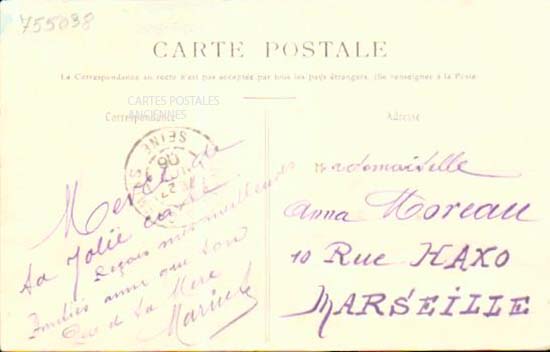 755038
CARTE POSTALE
La Correspondance au recto n'est pas acceptée par tous les pays étrangers. (Se renseigner à la Poste
CARTES POSTALES
ANCIENNES
Correspondance
Adresse
SEINE
Merci de
ta jolie carte
Reçois mes meilleures
Amitiés ainsi que
de la Mère
Mademoiselle
Anna Moreau
10 Rue HAXO
MARSEILLE